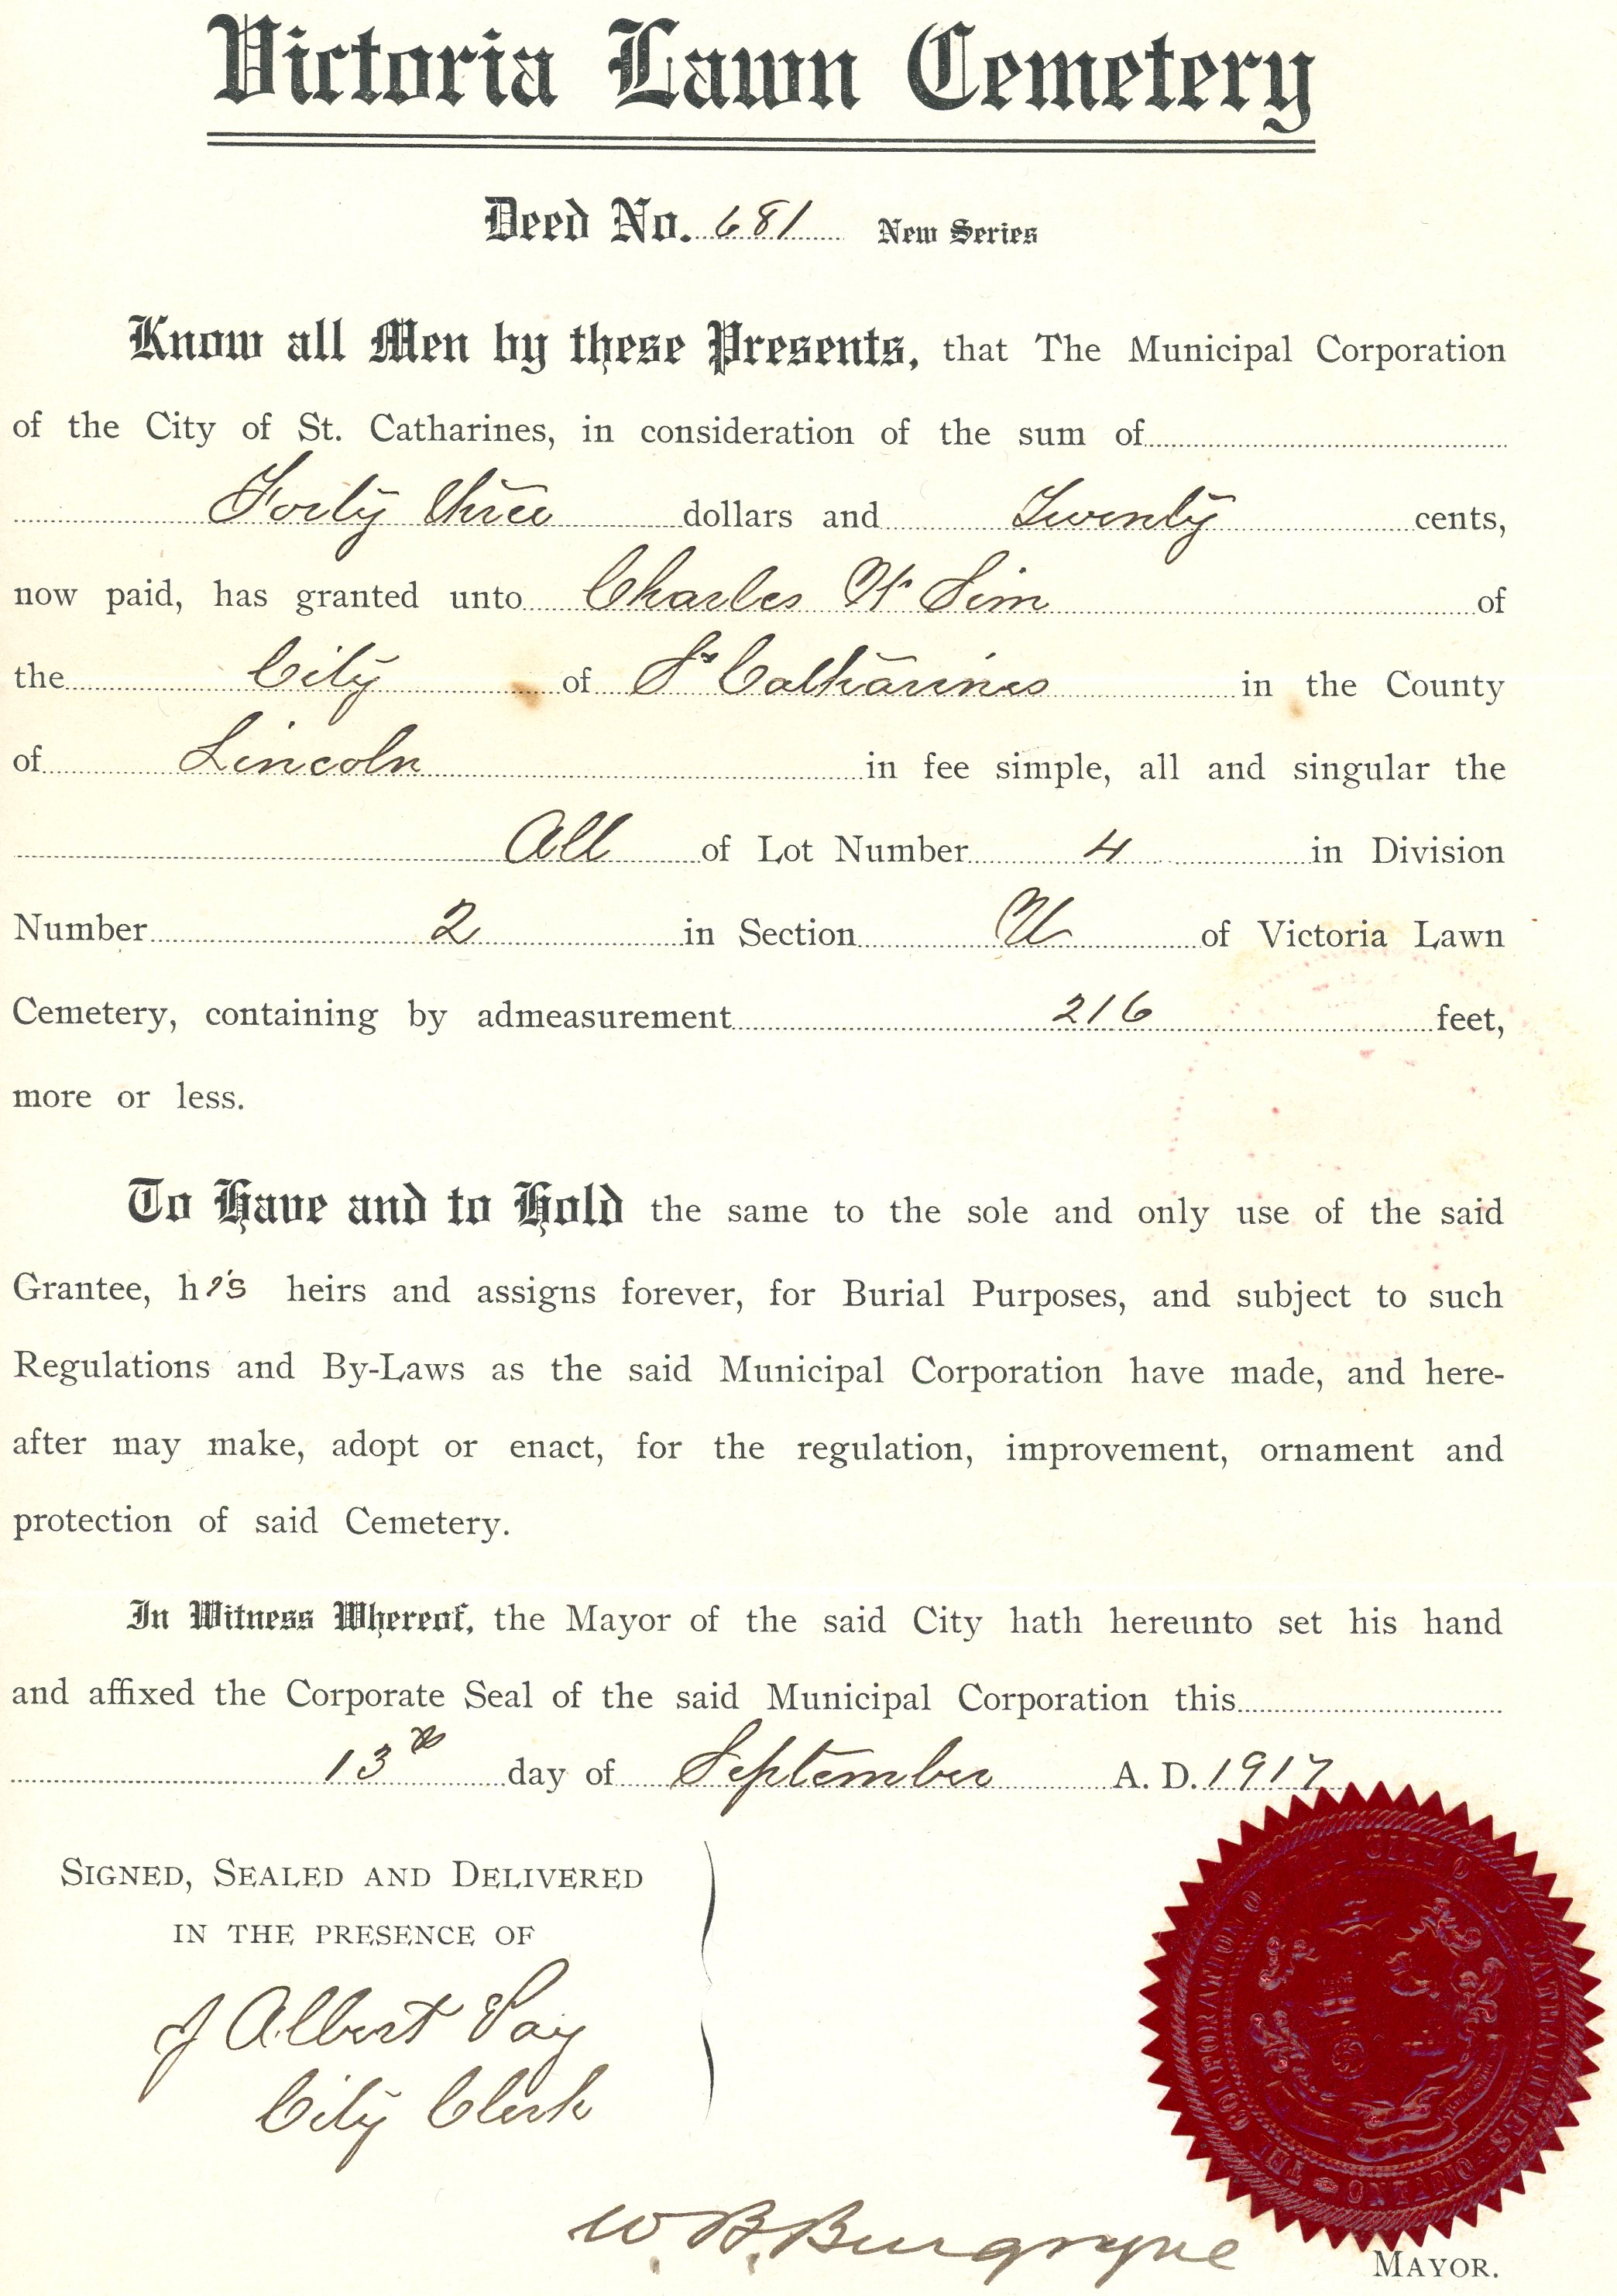 Victoria Lawn Cemetery
Deed No. 681 New Series
Know all Men by these Presents, that The Municipal Corporation
of the City of St. Catharines, in consideration of the sum of
Forty three dollars and Twenty cents,
now paid, has granted unto Charles W. Sim of
the City of St Catharines in the County
of Lincoln in fee simple, all and singular the
All of Lot Number 4 in Division
Number 2 in Section U of Victoria Lawn
Cemetery, containing by admeasurement 216 feet,
more or less.
To Have and to Hold the same to the sole and only use of the said
Grantee, his heirs and assigns forever, for Burial Purposes, and subject to such
Regulations and By-Laws as the said Municipal Corporation have made, and here-
after may make, adopt or enact, for the regulation, improvement, ornament and
protection of said Cemetery.
In Witness Whereof, the Mayor of the said City hath hereunto set his hand
and affixed the Corporate Seal of the said Municipal Corporation this
13th day of September A. D. 1917
SIGNED, SEALED AND DELIVERED
IN THE PRESENCE OF
J Albert Pay
City Clerk
THE CORPORATION CITY CATHARINES ONTARIO
W. B. Burgoyne
MAYOR.